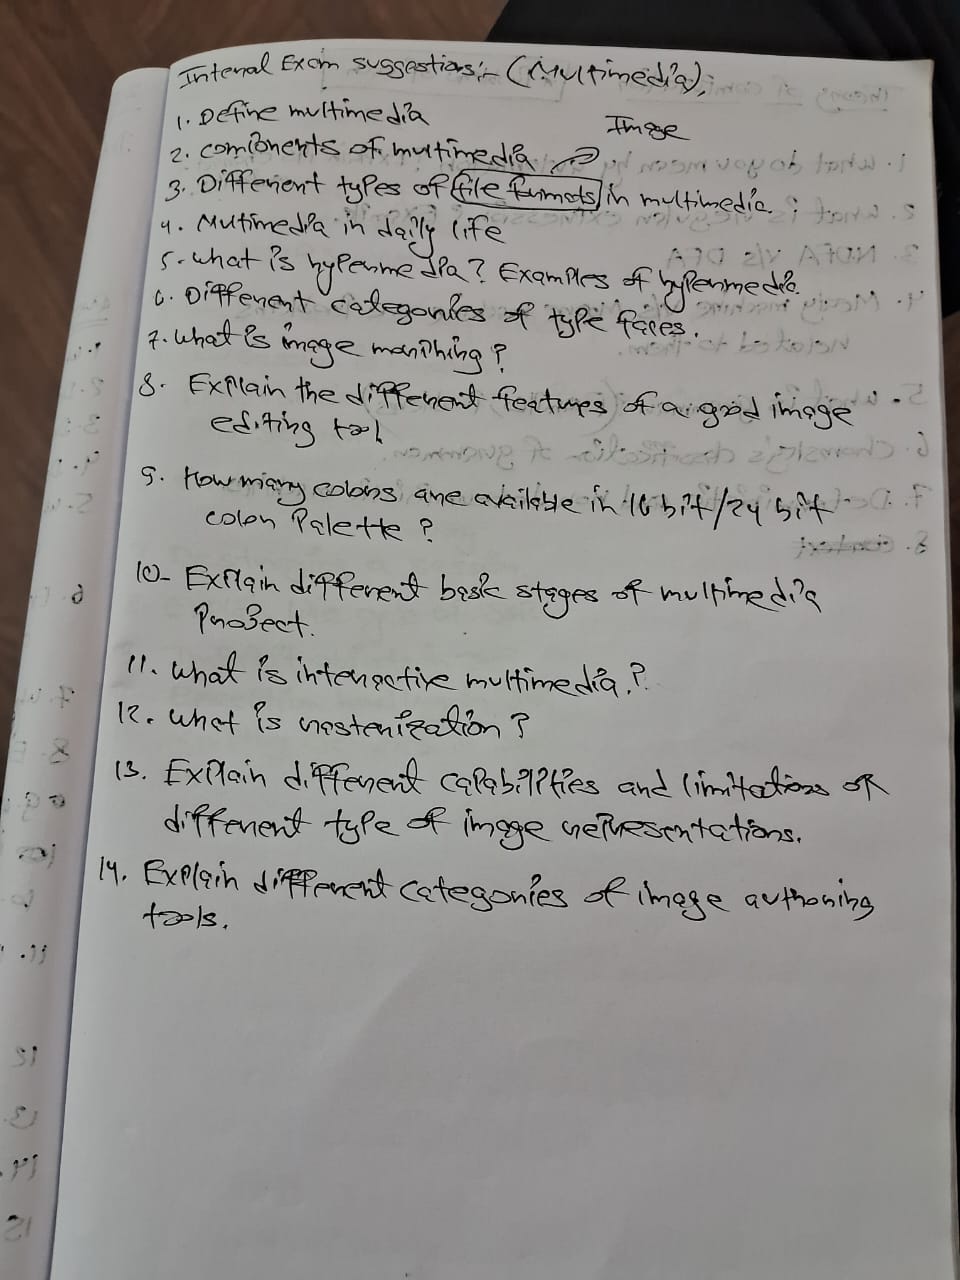 Internal Exam suggestions:- (Multimedia);
1. Define multimedia
Image
2. components of multimedia
3. Different types of file formats in multimedia.
4. Multimedia in daily life
5. what is hypermedia? Examples of hypermedia.
6. Different categories of type faces.
7. What is image morphing?
8. Explain the different features of a good image
editing tool
9. How many colors are available in 16 bit/24 bit
color Palette?
10- Explain different basic stages of multimedia
Project.
11. what is interactive multimedia.?
12. what is rasterization?
13. Explain different capabilities and limitations of
different type of image representations.
14. Explain different categories of image authoring
tools.